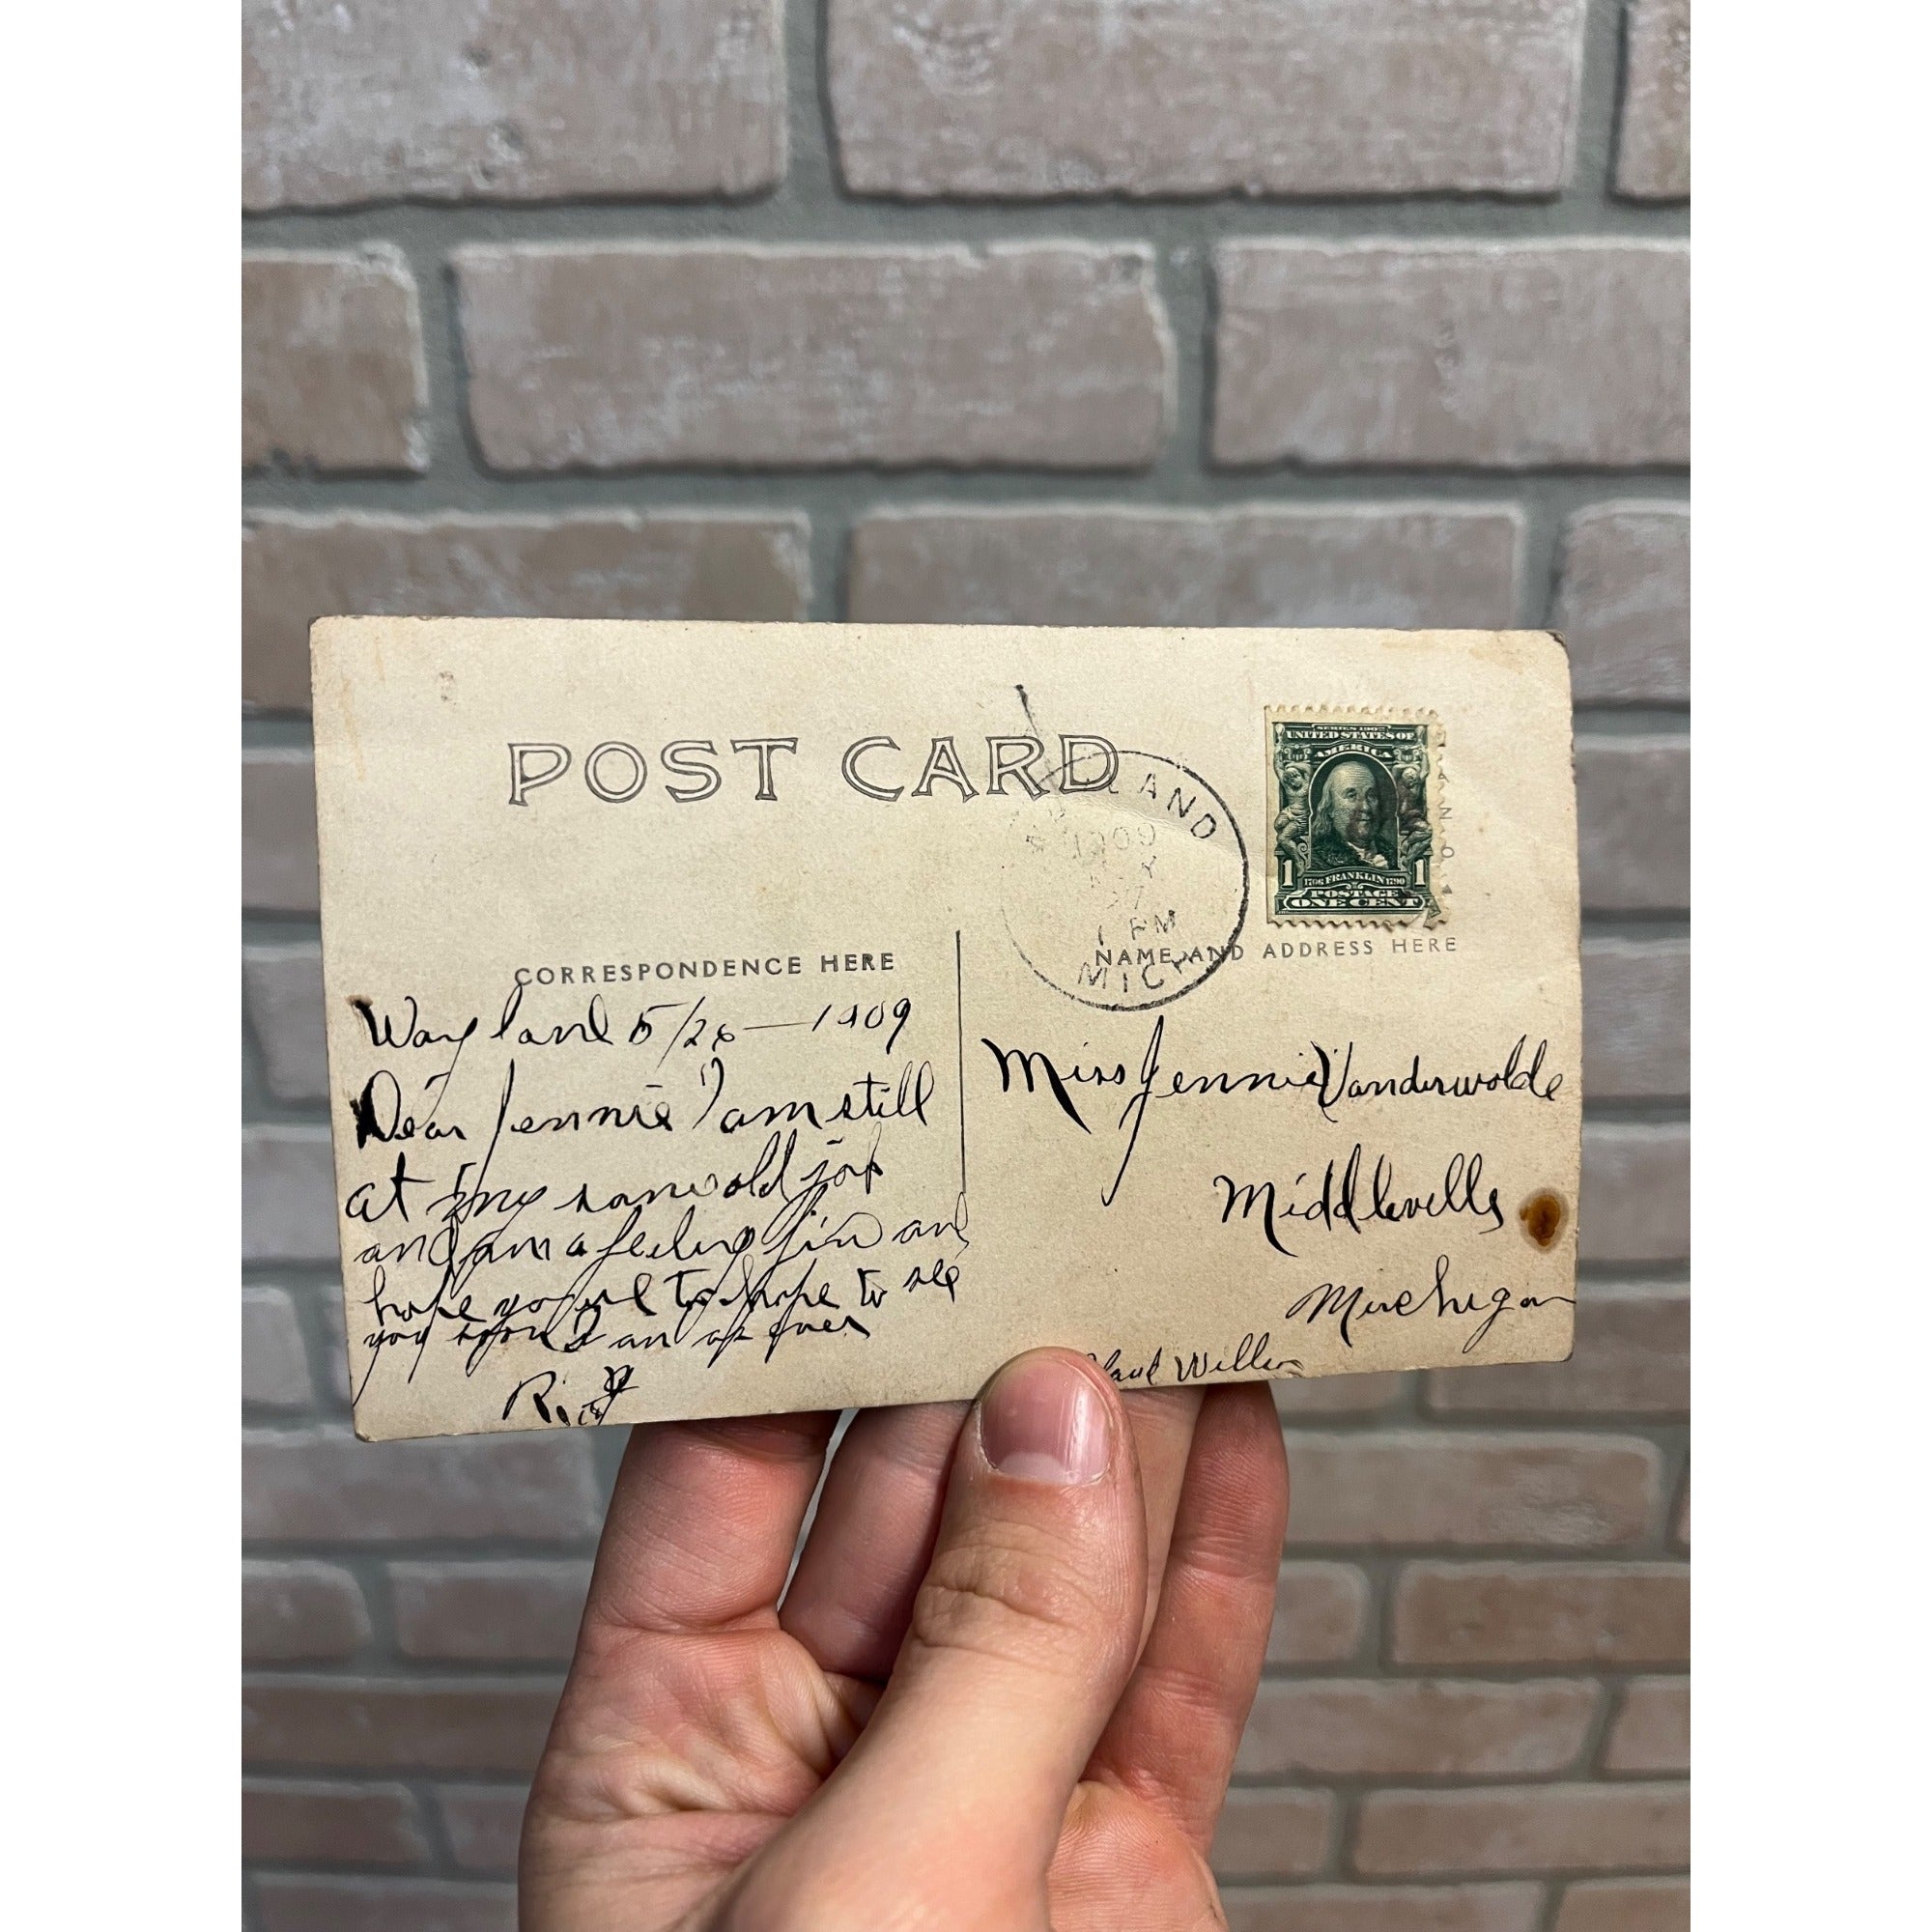 POST CARD
LAND
1909
27
1 PM
MICH
SERIES 1902
UNITED STATES OF
AMERICA
1 1706 FRANKLIN 1790 1
POSTAGE
ONE CENT
CORRESPONDENCE HERE
NAME AND ADDRESS HERE
Wayland 5/26—1909
Dear Jennie I am still
at my same old job
and am a feeling fine and
hope you to hope to see
you soon I am as ever
Miss Jennie Vanderwolde
Middleville
Michigan